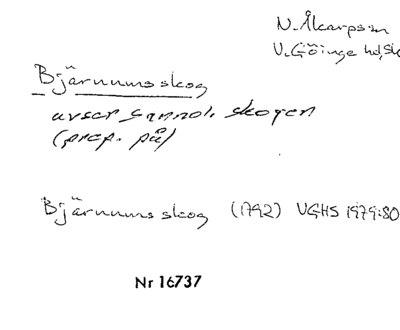 N. Åkarpssn
V. Göinge hd, Sk
Bjärnums skog
avser sannol. skogen
(prep. på)
Bjärnums skog (1792) VGHS 1979:80
Nr 16737